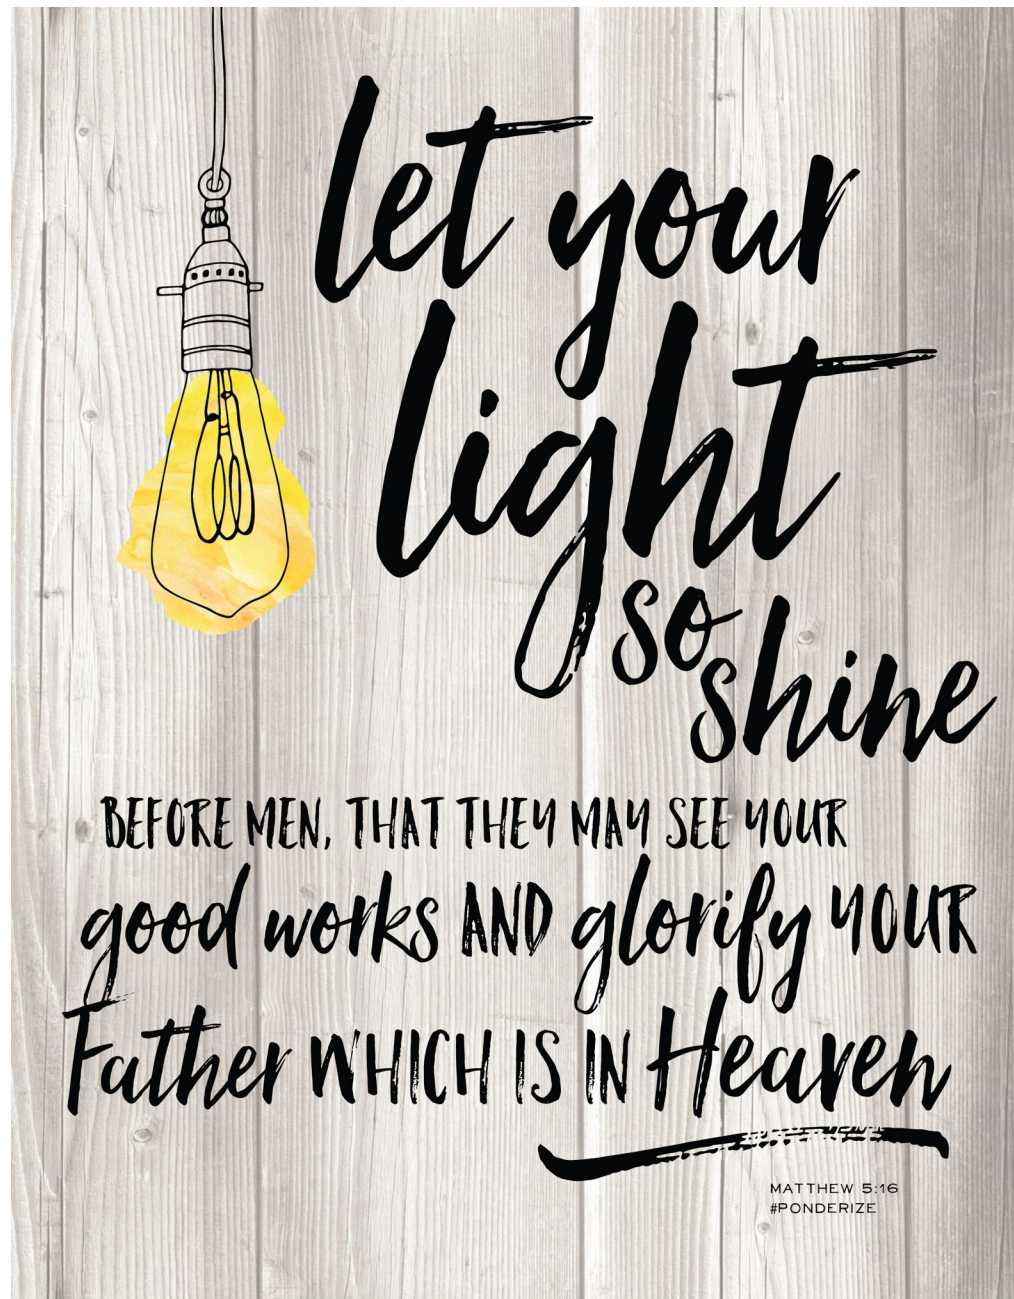 let your
light
so
shine
BEFORE MEN, THAT THEY MAY SEE YOUR
good works AND glorify YOUR
Father WHICH IS IN Heaven
MATTHEW 5:16
#PONDERIZE